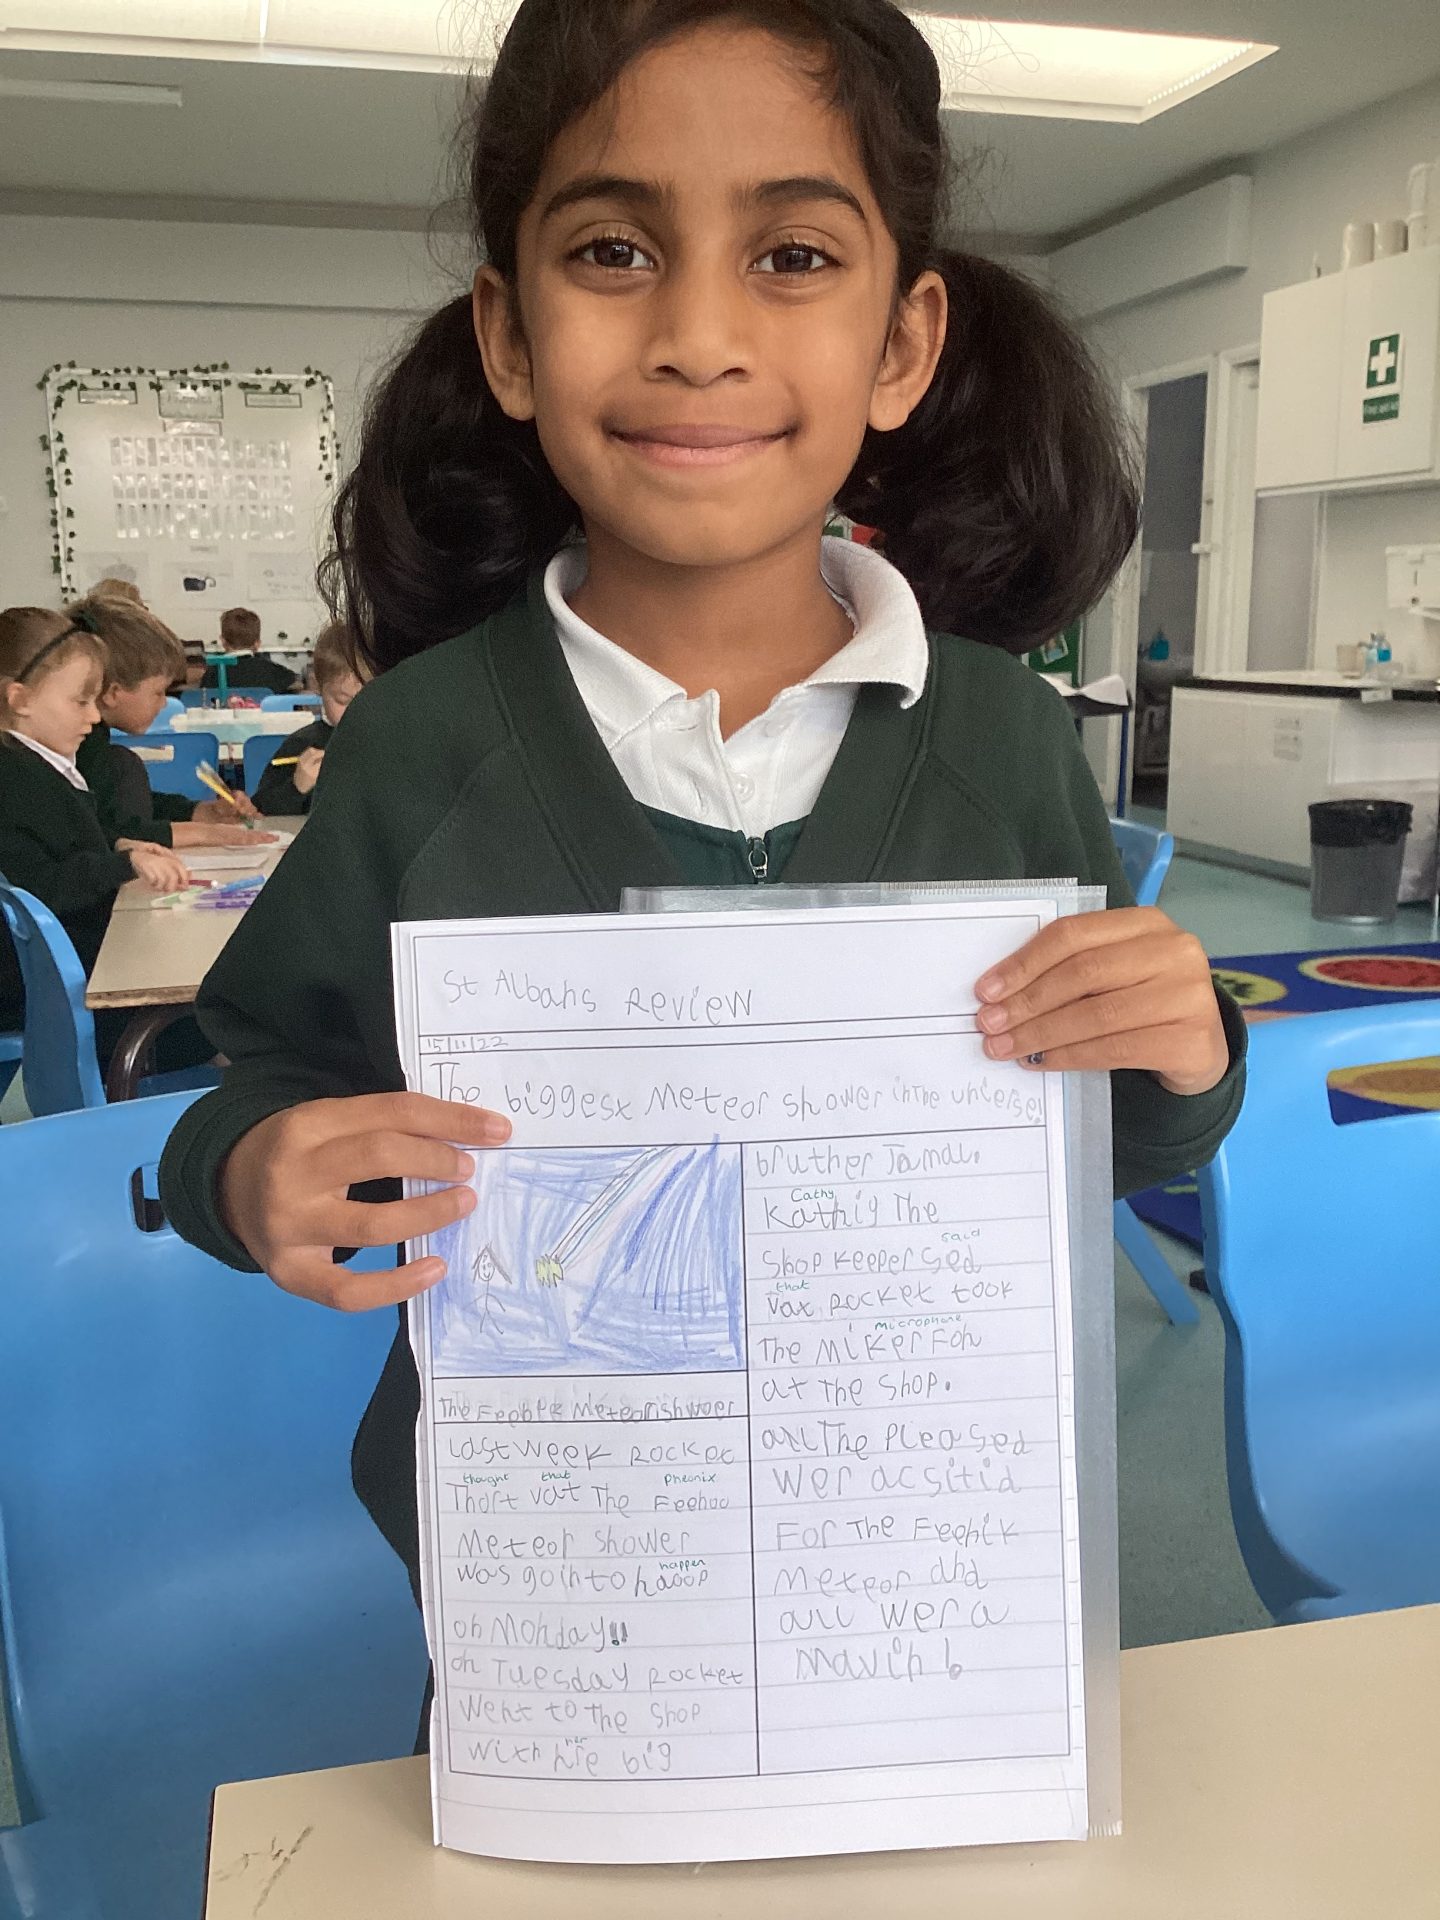 First aid
St Albans Review
15/11/22
The biggest Meteor shower in The unierse!
The Feehik Meteorishwoer
Last week Rocket
thought that pheonix
Thort vat The Feehoo
Meteor shower
happen
was goin to haoop
on Monday!!
on Tuesday Rocket
Went to the shop
her
with hie big
bruther Jamal.
Cathy
Kathiy The
said
Shop keeper sed
that
vat Rocket took
microphone
The Miker Fon
at The shop.
all The pleased
wer acsitid
For The Feehik
Meteor and
all wer a
mavin 6